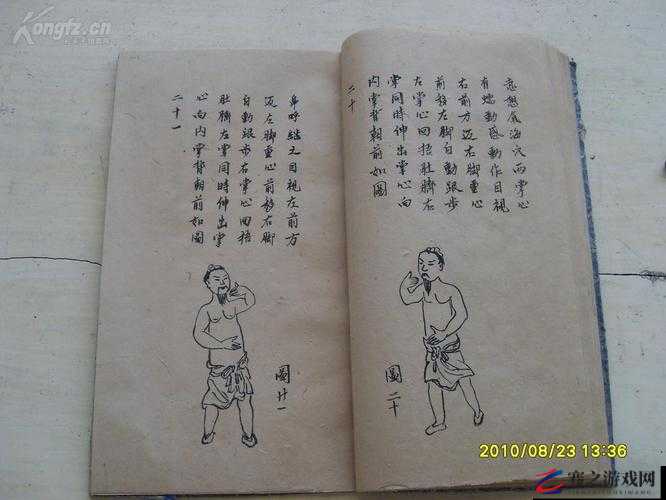 意想氣海穴而掌心
有蠕動感動作目視
右前方迈右脚重心
前移左脚自動跟步
左掌心回捂肚臍右
掌同時伸出掌心向
内掌背朝前如圖
二十
圖二十
鼻呼继之目視左前方
迈左脚重心前移右脚
自動跟步右掌心回捂
肚臍左掌同時伸出掌
心向内掌背朝前如圖
二十一
圖廿一
Kongfz.cn
2010/08/23 13:36
賽之游戏网